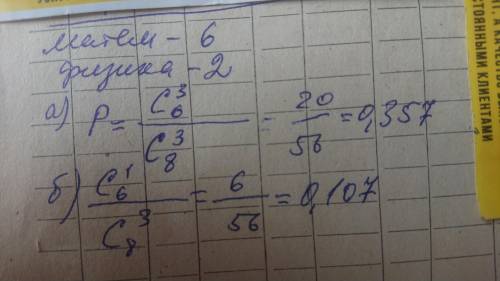 матем - 6
физика - 2
а) P = C₆³ / C₈³ = 20 / 56 = 0,357
б) C₆¹ / C₈³ = 6 / 56 = 0,107
СТОЯННЫМИ КЛИЕНТАМИ